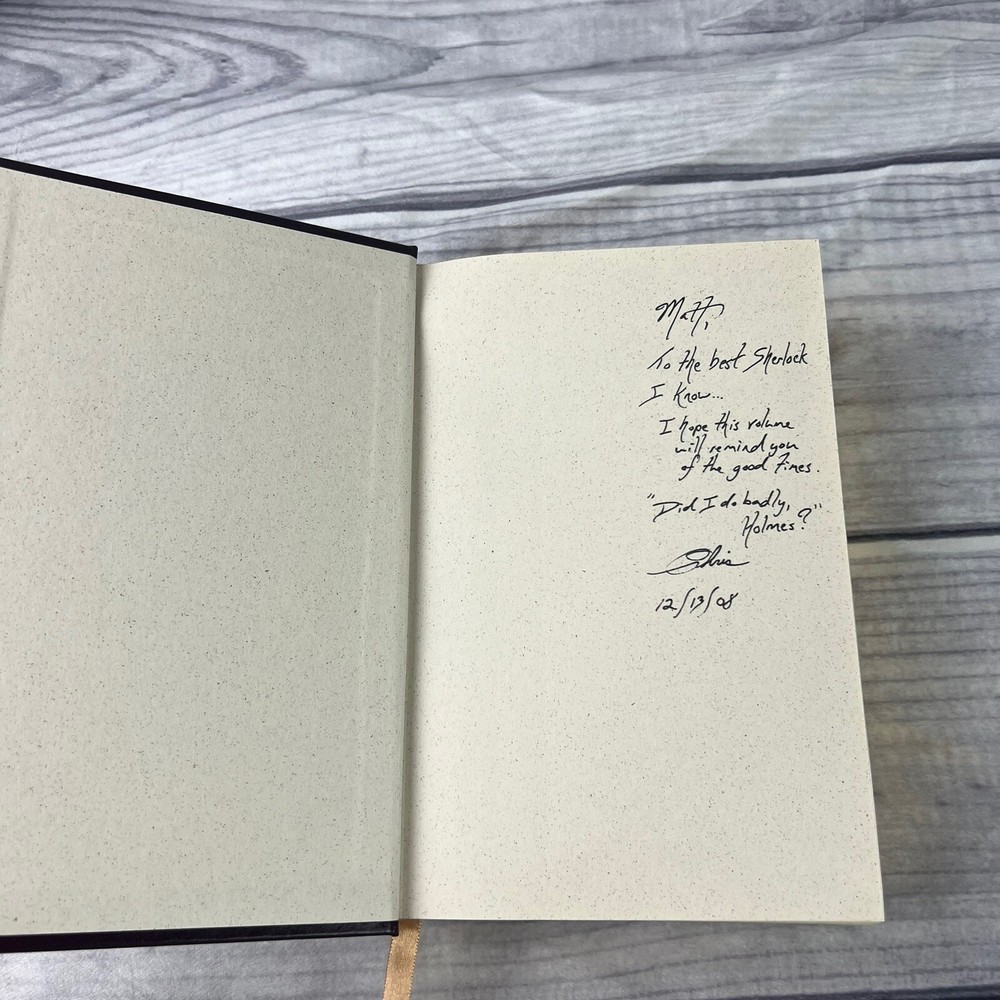 Matt,
To the best Sherlock
I know...
I hope this volume
will remind you
of the good times.
"Did I do badly,
Holmes?"
12/13/08